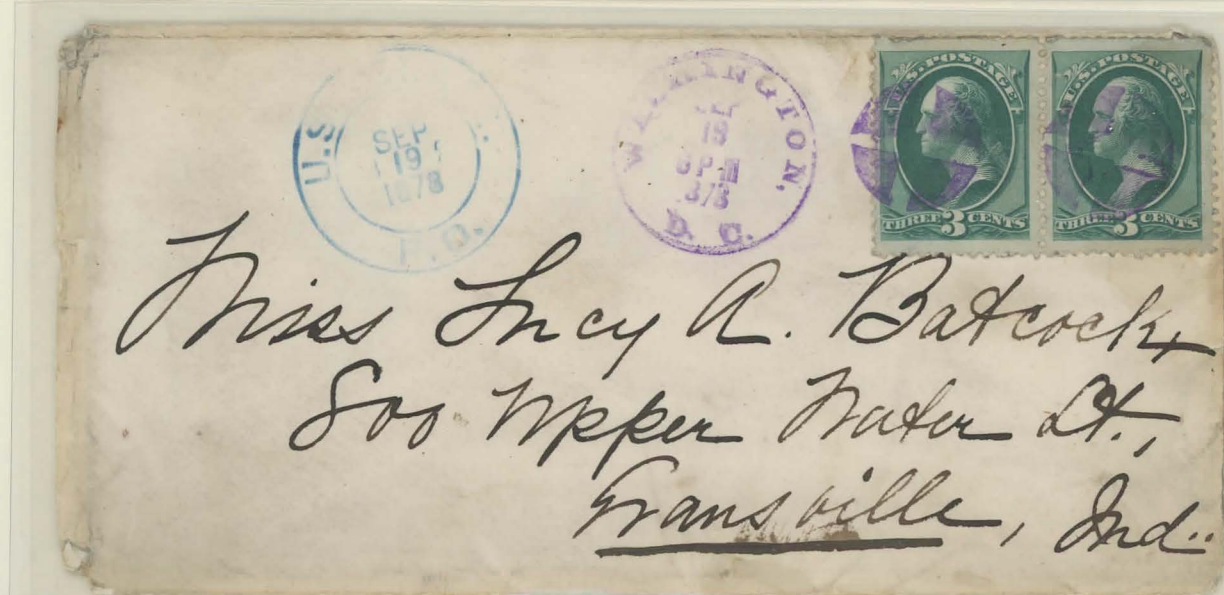 U.S. P.O.
SEP
19
1878
WASHINGTON,
19
6 PM
D. C.
U.S. POSTAGE
THREE 3 CENTS
U.S. POSTAGE
THREE 3 CENTS
Miss Lucy A. Batcock,
800 Upper Water St.,
Evansville, Ind.